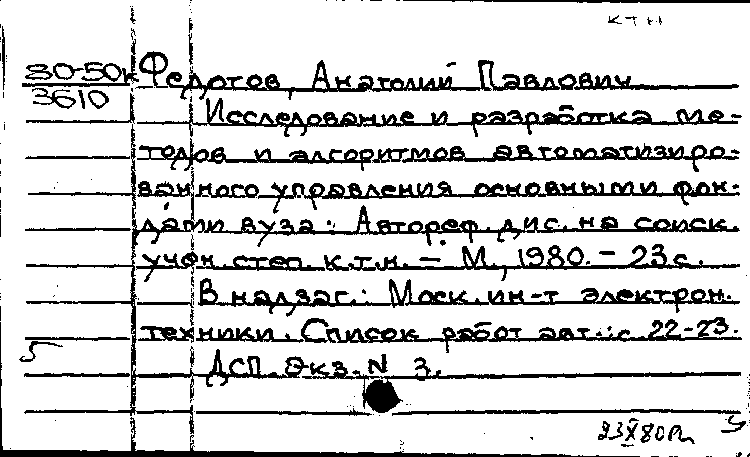 КТН
80-50к Федотов, Анатолий Павлович
3610
Исследование и разработка ме-
тодов и алгоритмов автоматизиро-
ванного управления основными фон-
дами вуза: Автореф. дис. на соиск.
учен. степ. к.т.н. – М., 1980. – 23 с.
В надзаг.: Моск. ин-т электрон.
техники. Список работ авт.: с. 22-23.
5
ДСП. Экз. N 3.
23 X 80